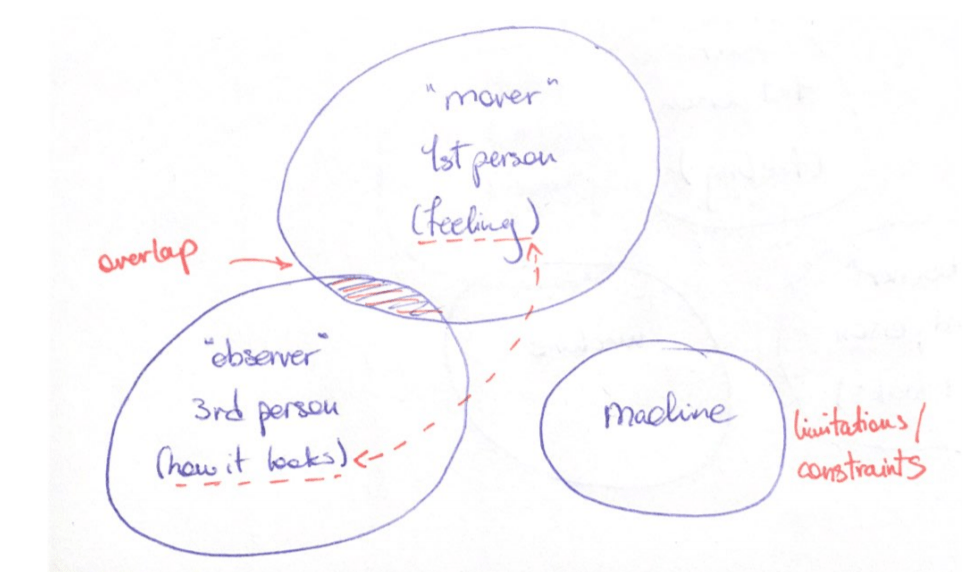 "mover"
1st person
(feeling)
overlap
"observer"
3rd person
(how it looks)
machine
limitations/
constraints